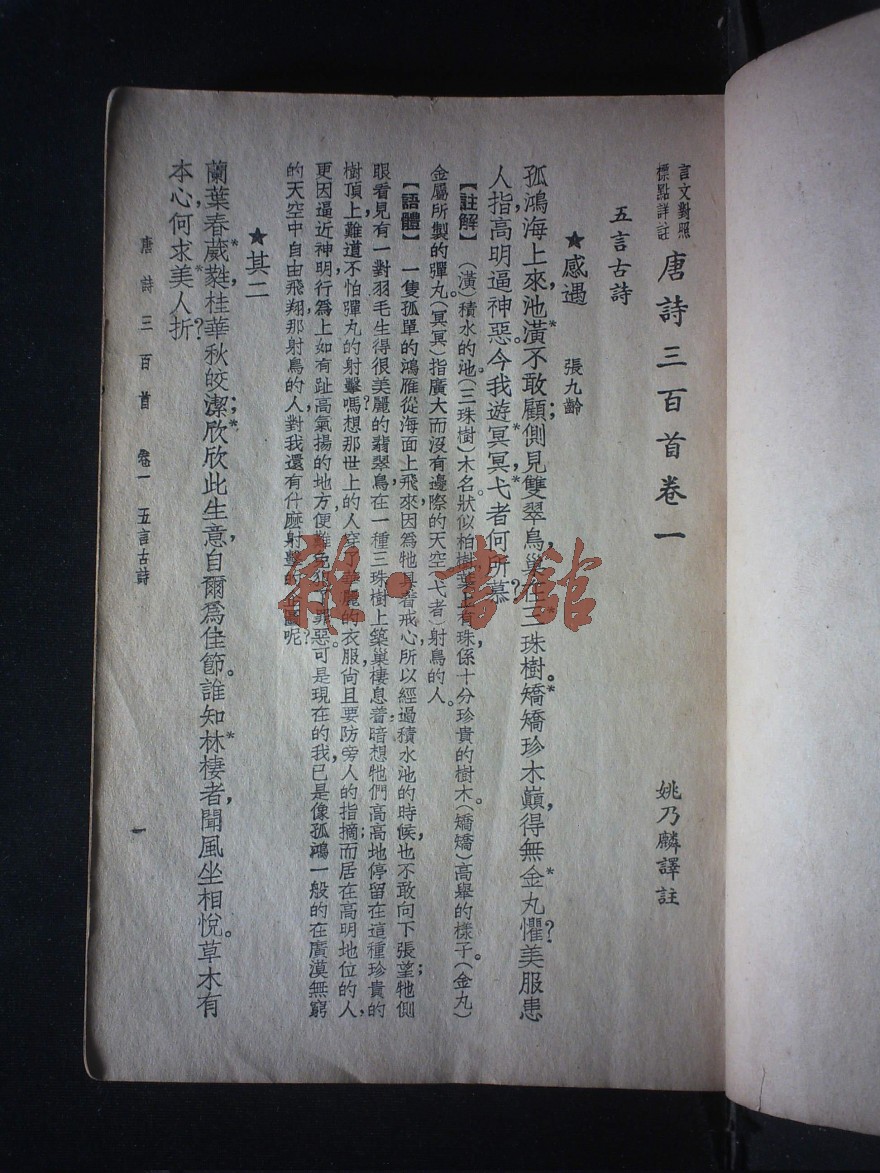 言文對照
標點詳註
唐詩三百首卷一
姚乃麟譯註
五言古詩
★感遇 張九齡
孤鴻海上來,池潢不敢顧;側見雙翠鳥,巢在三珠樹。矯矯珍木巔,得無金丸懼?美服患
人指,高明逼神惡。今我遊冥冥,弋者何所慕?
【註解】(潢)積水的池。(三珠樹)木名。狀似柏樹,葉上有珠,係十分珍貴的樹木。(矯矯)高舉的樣子。(金丸)
金屬所製的彈丸。(冥冥)指廣大而沒有邊際的天空。(弋者)射鳥的人。
【語體】一隻孤單的鴻雁從海面上飛來,因爲牠具着戒心,所以經過積水池的時候,也不敢向下張望;牠側
眼看見有一對羽毛生得很美麗的翡翠鳥,在一種三珠樹上築巢棲息着;暗想牠們高高地停留在這種珍貴的
樹頂上,難道不怕彈丸的射擊嗎?想那世上的人,穿了華麗的衣服,尙且要防旁人的指摘;而居在高明地位的人,
更因逼近神明,行爲上如有趾高氣揚的地方,便難免犯了罪惡。可是現在的我,已是像孤鴻一般的在廣漠無窮
的天空中自由飛翔,那射鳥的人,對我還有什麽射擊的企圖呢?
★其二
蘭葉春葳蕤,桂華秋皎潔;欣欣此生意,自爾爲佳節。誰知林棲者,聞風坐相悅。草木有
本心,何求美人折?
唐詩三百首 卷一 五言古詩
一
雜·書館